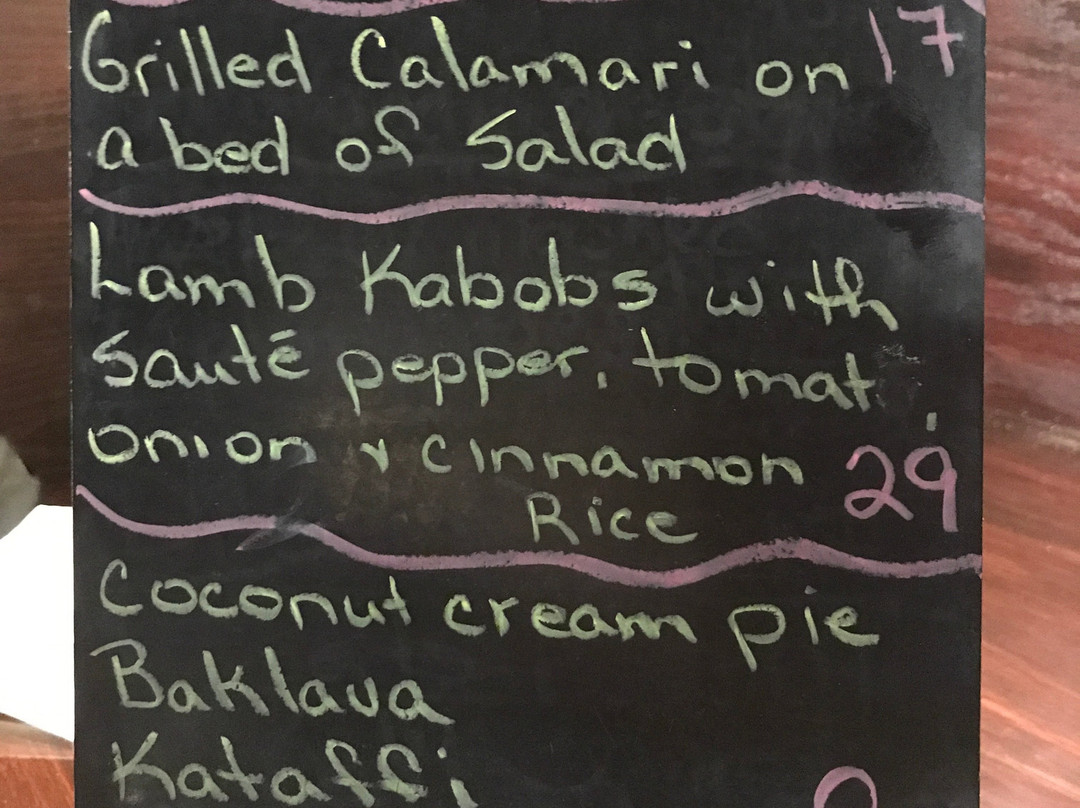 Grilled Calamari on 17
a bed of Salad
Lamb Kabobs with
Sauté pepper, tomat
onion & cinnamon 29
Rice
Coconut cream pie
Baklava
Kataffi